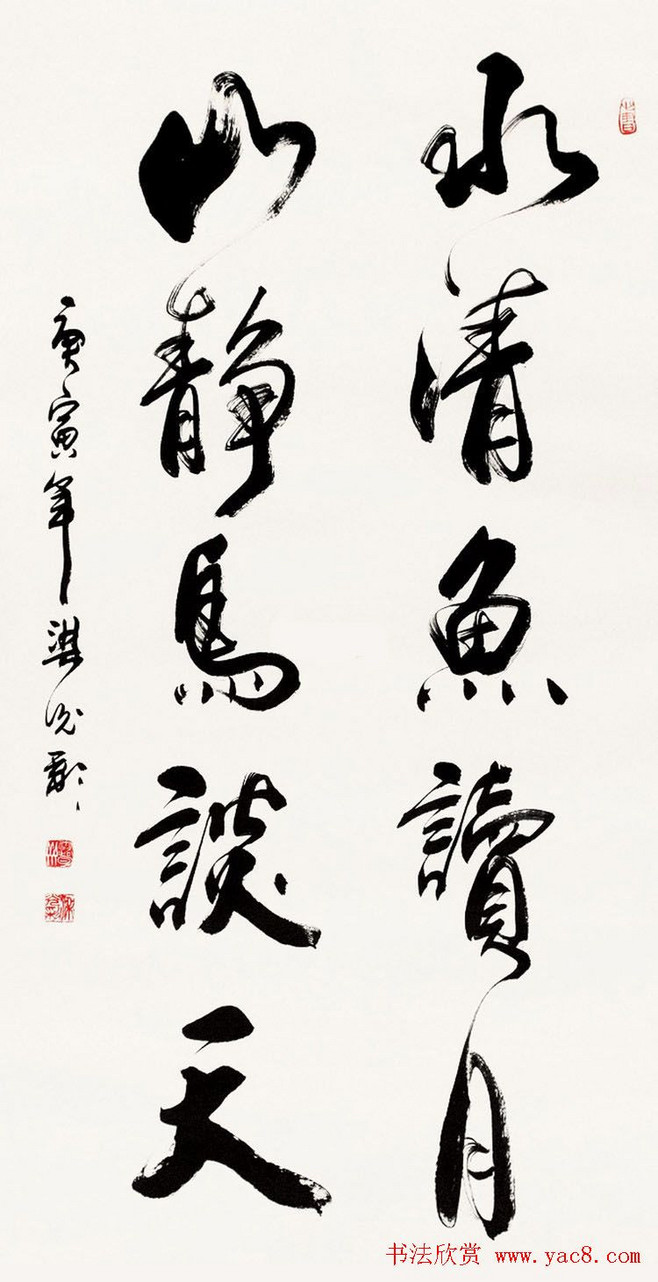 水清魚讀月
山靜鳥談天
庚寅年
书法欣赏 www.yac8.com